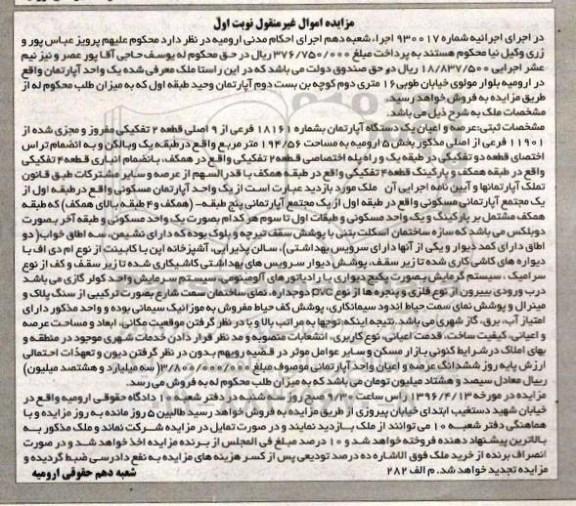 مزایده اموال غیرمنقول نوبت اول
در اجرای اجرائیه شماره ۹۳۰۰۱۷ اجراء، شعبه دهم اجرای احکام مدنی ارومیه در نظر دارد محکوم علیهم پرویز عباس پور و
زری وکیل نیا محکوم هستند به پرداخت مبلغ ۳۷۶/۷۵۰/۰۰۰ ریال در حق محکوم له یوسف حاجی آقا پور عصر و نیز نیم
عشر اجرایی ۱۸/۸۳۷/۵۰۰ ریال در حق صندوق دولت می باشد که در این راستا ملک معرفی شده یک واحد آپارتمان واقع
در ارومیه بلوار مولوی خیابان طوبی ۱۶ متری دوم کوچه بن بست دوم آپارتمان وحید طبقه اول که به میزان طلب محکوم له از
طریق مزایده به فروش خواهد رسید.
مشخصات ملک به شرح ذیل می باشد.
مشخصات ثبتی: عرصه و اعیان یک دستگاه آپارتمان بشماره ۱۸۱۶۱ فرعی از ۹ اصلی قطعه ۲ تفکیکی مفروز و مجزی شده از
۱۱۹۰۱ فرعی از اصلی مذکور بخش ۵ ارومیه به مساحت ۱۹۴/۵۶ متر مربع واقع در طبقه یک و بالکن و به انضمام تراس
اختصای قطعه دو تفکیکی در طبقه یک و راه پله اختصاصی قطعه ۲ تفکیکی واقع در همکف، بانضمام انباری قطعه ۴ تفکیکی
واقع در طبقه همکف و پارکینگ قطعه ۴ تفکیکی واقع در طبقه همکف با قدرالسهم از عرصه و سایر مشترکات طبق قانون
تملک آپارتمانها و آیین نامه اجرایی آن ملک مورد بازدید عبارت است از یک واحد آپارتمان مسکونی واقع در طبقه اول از
یک مجتمع آپارتمانی مسکونی واقع در طبقه اول از یک مجتمع آپارتمانی پنج طبقه- (همکف و ۴ طبقه بالای همکف) که طبقه
همکف مشتمل بر پارکینگ و یک واحد مسکونی و طبقات اول تا سوم هر کدام بصورت یک واحد مسکونی و طبقه آخر بصورت
دوبلکس می باشد که سازه ساختمان اسکلت بتنی با پوشش سقف تیرچه و بلوک بوده که دارای نشیمن، سه اطاق خواب( دو
اطاق دارای کمد دیوار و یکی از آنها دارای سرویس بهداشتی)، سالن پذیرایی، آشپزخانه اپن با کابینت از نوع ام دی اف با
دیواره های کاشی کاری شده تا زیر سقف، پوشش دیوار سرویس های بهداشتی کاشیکاری شده تا زیر سقف و کف از نوع
سرامیک . سیستم گرمایش بصورت پکیج دیواری با رادیاتورهای آلومنیومی سیستم سرمایش واحد کولر گازی می باشد
درب ورودی بیرون از نوع فلزی و پنجره ها از نوع pvc دوجداره، نمای ساختمان سمت شارع بصورت ترکیبی از سنگ پلاک و
مینرال و پوشش نمای سمت حیاط اندود سیمانکاری، پوشش کف حیاط مفروش به موزائیک سیمانی بوده و واحد مذکور دارای
امتیاز آب، برق، گاز شهری می باشد. نتیجه اینکه توجها به مراتب بالا و با در نظر گرفتن موقعیت مکانی، ابعاد و مساحت عرصه
و اعیانی، کیفیت ساخت، قدمت اعیانی، نوع کاربری، انشعابات منصوبه و مد نظر قرار دادن خدمات شهری موجود در منطقه و
بهای املاک در شرایط کنونی بازار مسکن و سایر عوامل موثر در قضیه رویهم بدون در نظر گرفتن دیون و تعهدات احتمالی
ارزش پایه روز ششدانگ عرصه و اعیان واحد آپارتمانی موصوف مبلغ ۳/۸۰۰/۰۰۰/۰۰۰ (سه میلیارد و هشتصد میلیون)
رییال معادل سیصد و هشتاد میلیون تومان می باشد که به میزان طلب محکوم له به فروش می رسد.
مزایده در مورخه ۱۳۹۶/۴/۱۳ راس ساعت ۸/۳۰ صبح روز سه شنبه در دفتر شعبه ۱۰ دادگاه حقوقی ارومیه واقع در
خیابان شهید دستغیب ابتدای خیابان پیروزی از طریق مزایده به فروش خواهد رسید طالبین ۵ روز مانده به روز مزایده و با
هماهنگی دفتر شعبه ۱۰ می توانند از ملک بازدید نمایند و در صورت تمایل در مزایده شرکت نماند و ملک مذکور به
بالاترین پیشنهاد دهنده فروخته خواهد شد و ۱۰ درصد مبلغ فی المجلس از برنده مزایده اخذ خواهد شد و در صورت
انصراف برنده از خرید ملک فوق الاشاره ده درصد تودیعی پس از کسر هزینه های مزایده به نفع دادرسی ضبط گردیده و
مزایده تجدید خواهد شد. م الف ۲۸۲
شعبه دهم حقوقی ارومیه